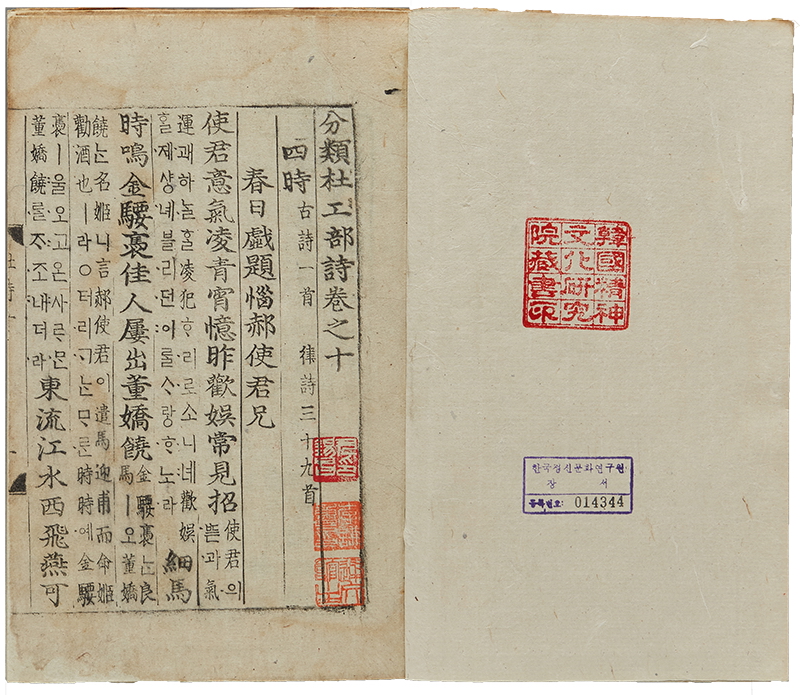 韓國精神
文化研究
院藏書印
한국정신문화연구원
장 서
등록번호: 014344
分類杜工部詩卷之十
四時 古詩一首 律詩三十九首
春日戲題惱郝使君兄
使君意氣凌青霄憶昨歡娛常見招
使君의
ᄠᅳᆮ과氣
運괘하ᄂᆞᆯᄒᆞᆯ凌犯ᄒᆞ리로소니녜歡娛
ᄒᆞᆯ제샹녜블리던이ᄅᆞᆯᄉᆞ랑ᄒᆞ노라
細馬
時鳴金騕褭佳人屢出董嬌饒
金騕褭ᄂᆞᆫ良
馬ㅣ오董嬌
饒ᄂᆞᆫ名姬니言郝使君이遣馬迎甫而命姬
勸酒也ㅣ라○터리ᄀᆞᄂᆞᆫᄆᆞᄅᆞᆫ時時예金騕
褭ㅣ울오고온사ᄅᆞᄆᆞᆫ
董嬌饒ᄅᆞᆯᄌᆞ조내더라
東流江水西飛燕可